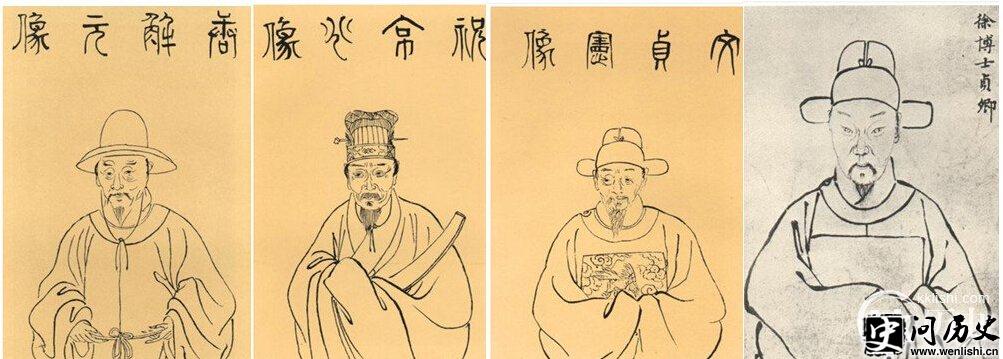 唐解元像
祝京兆像
文貞憲像
徐博士貞卿
kklishi.com
问历史
www.wenlishi.cn